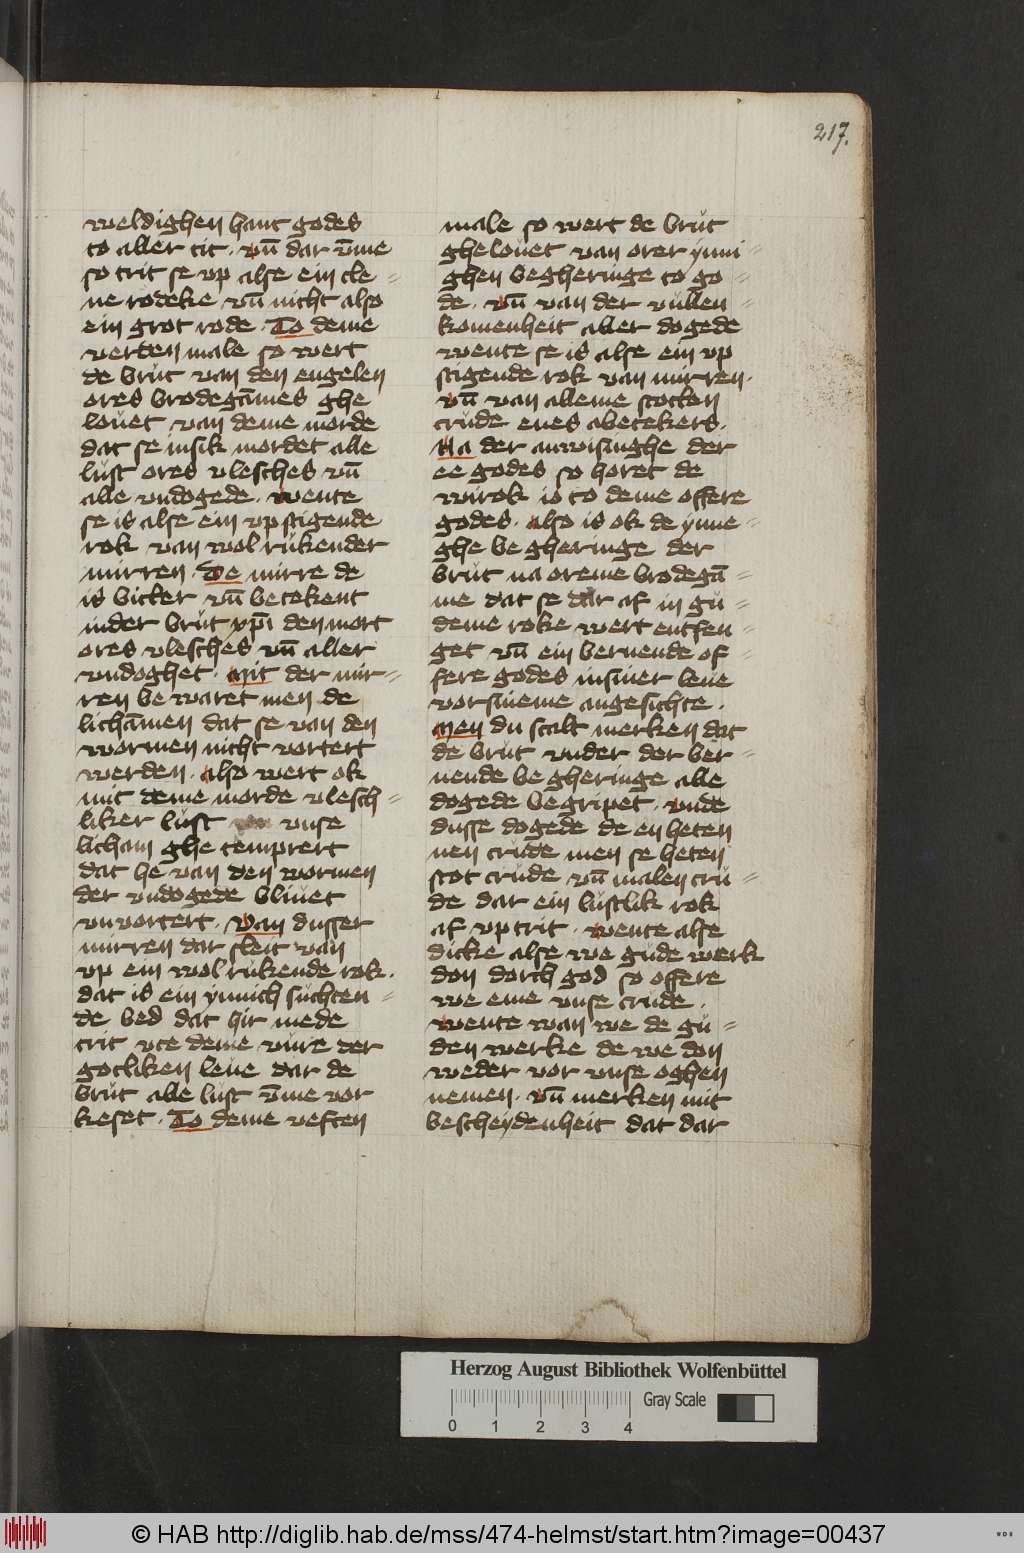 217.
weldighen hant godes
to aller tit. vn̄ dar v̄me
so trit se vp alse ein cle=
ne rodeke vn̄ nicht also
ein grot rode. To deme
verden male so wert
de brut van den engelen
ores brodegāmes ghe
louet van deme morde
dat se insik mordet alle
lust ores vlesches vn̄
alle vndogede. wente
se is alse ein vpstigende
rok van wol rukender
mirren. De mirre de
is bitter vn̄ betekent
in der brut xp̄i den mort
ores vlesches vn̄ aller
vndoghet. Mit der mir=
ren be waret men de
lichāmen dat se van den
wormen nicht vortert
werden. also wert ok
mit deme morde vlesch=
liker lust vnse
licham ghe temprert
dat he van den wormen
der vndogede bliuet
vnvortert. Van dusser
mirren dar sleit van
vp ein wol rukende rok.
dat is ein ynnich suchten=
de bed dat hir mede
trit vte deme vure der
gotliken leue dar de
brut alle lust v̄me vor
keset. To deme veften
male so wert de brut
ghelouet van orer ynni=
ghen begheringe to go=
de. vn̄ van der vullen=
komenheit aller dogede
wente se is alse ein vp
stigende rok van mirren.
vn̄ van alleme stotten
crude enes abetekers.
Na der anwisinghe der
ee godes so horet de
wirok io to deme offere
godes. also is ok de ynne=
ghe be gheringe der
brut na oreme brodegā=
me dat se dar af in gu=
deme roke wert entfen=
get vn̄ ein bernende of=
fere godes in siner leue
vor sineme angesichte.
Men du scalt merken dat
de brut vnder der ber=
nende be gheringe alle
dogede begripet. vnde
dusse dogede de en heten
nen crude men se heten
stot crude vn̄ malen cru=
de dar ein lustlik rok
af vp trit. wente alse
dicke alse we gude werk
don dorch god so offere
we eme vnse crude.
wente wan we de gu=
den werke de we don
weder vor vnse oghen
nemen. vn̄ merken mit
bescheydenheit dat dar
Herzog August Bibliothek Wolfenbüttel
Gray Scale
0 1 2 3 4
© HAB http://diglib.hab.de/mss/474-helmst/start.htm?image=00437